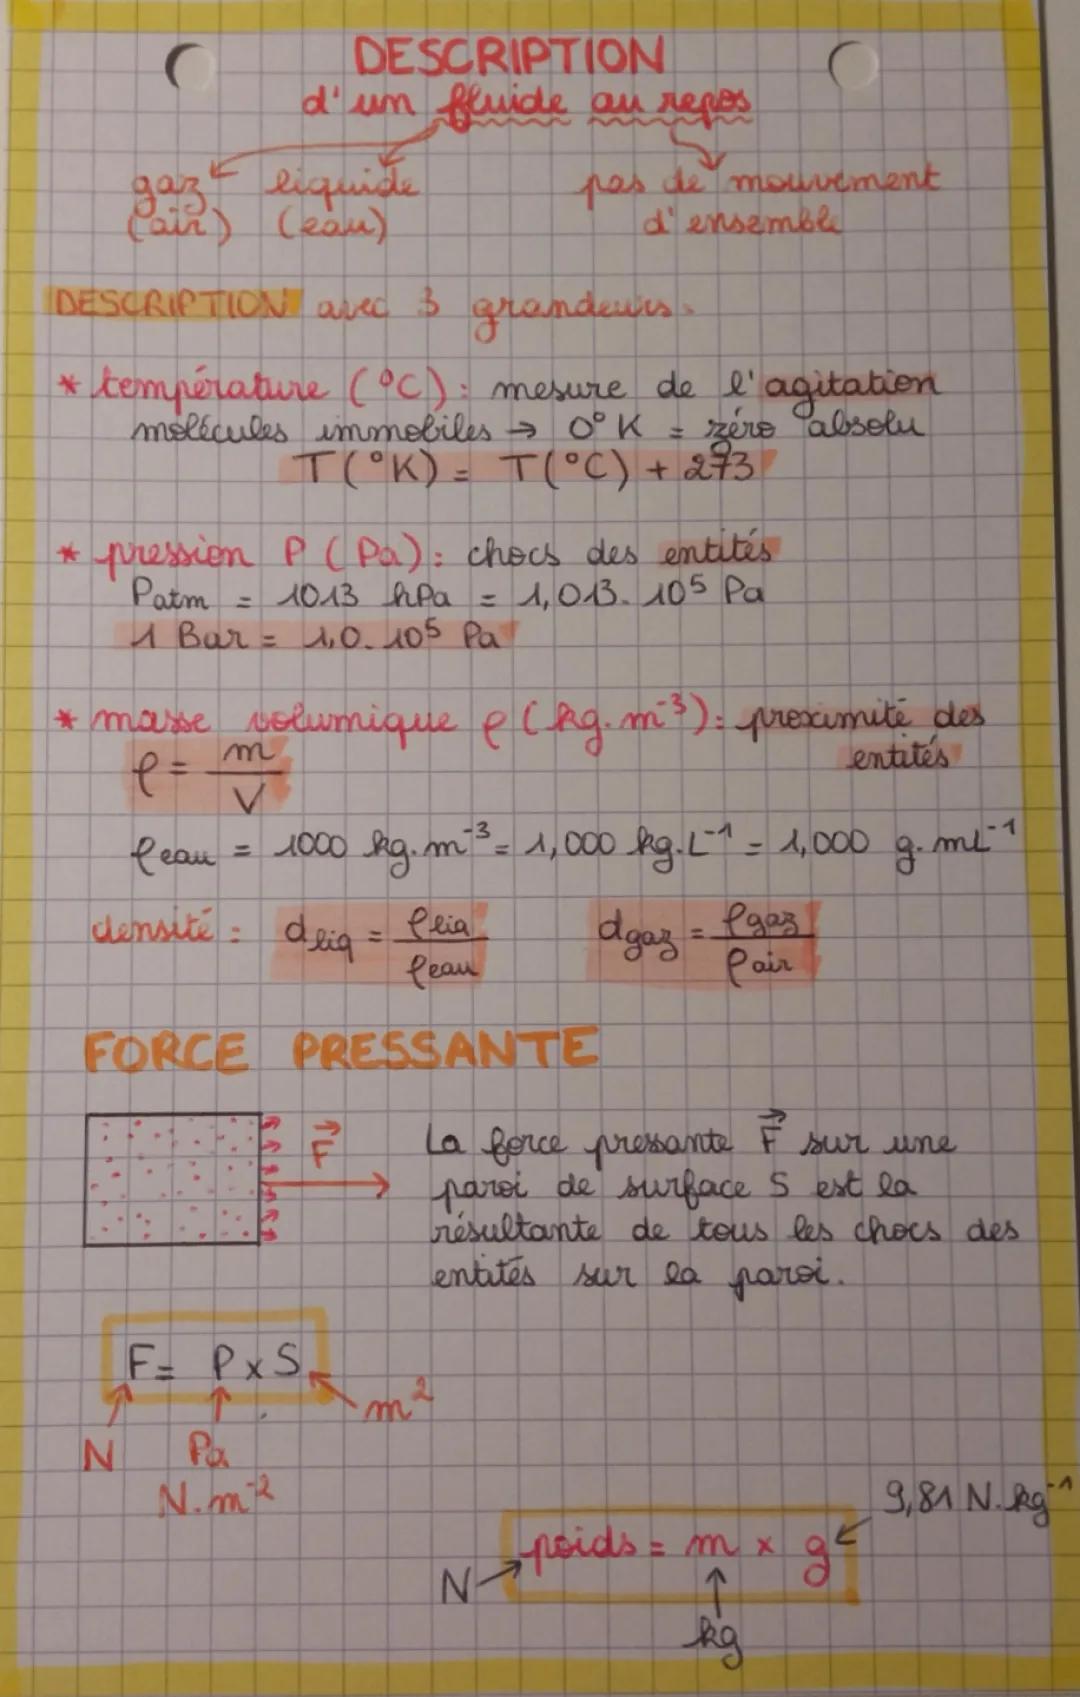 DESCRIPTION
d'un fluide au repos
gaz liquide pas de mouvement
(air) (eau) d'ensemble
DESCRIPTION avec 3 grandeurs.
* température (°C) : mesure de l'agitation
molécules immobiles → 0°K = zéro absolu
T(°K) = T(°C) + 273
* pression P (Pa) : chocs des entités
Patm = 1013 hPa = 1,013. 10⁵ Pa
1 Bar = 1,0. 10⁵ Pa
* masse volumique ρ (kg.m⁻³) : proximité des
entités
ρ = m/V
ρeau = 1000 kg.m⁻³ = 1,000 kg.L⁻¹ = 1,000 g.mL⁻¹
densité : dliq = ρliq/ρeau dgaz = ρgaz/ρair
FORCE PRESSANTE
F⃗
La force pressante F⃗ sur une
paroi de surface S est la
résultante de tous les chocs des
entités sur la paroi.
F = P x S
m²
N Pa
N.m⁻²
9,81 N.kg⁻¹
poids = m x g
N
kg